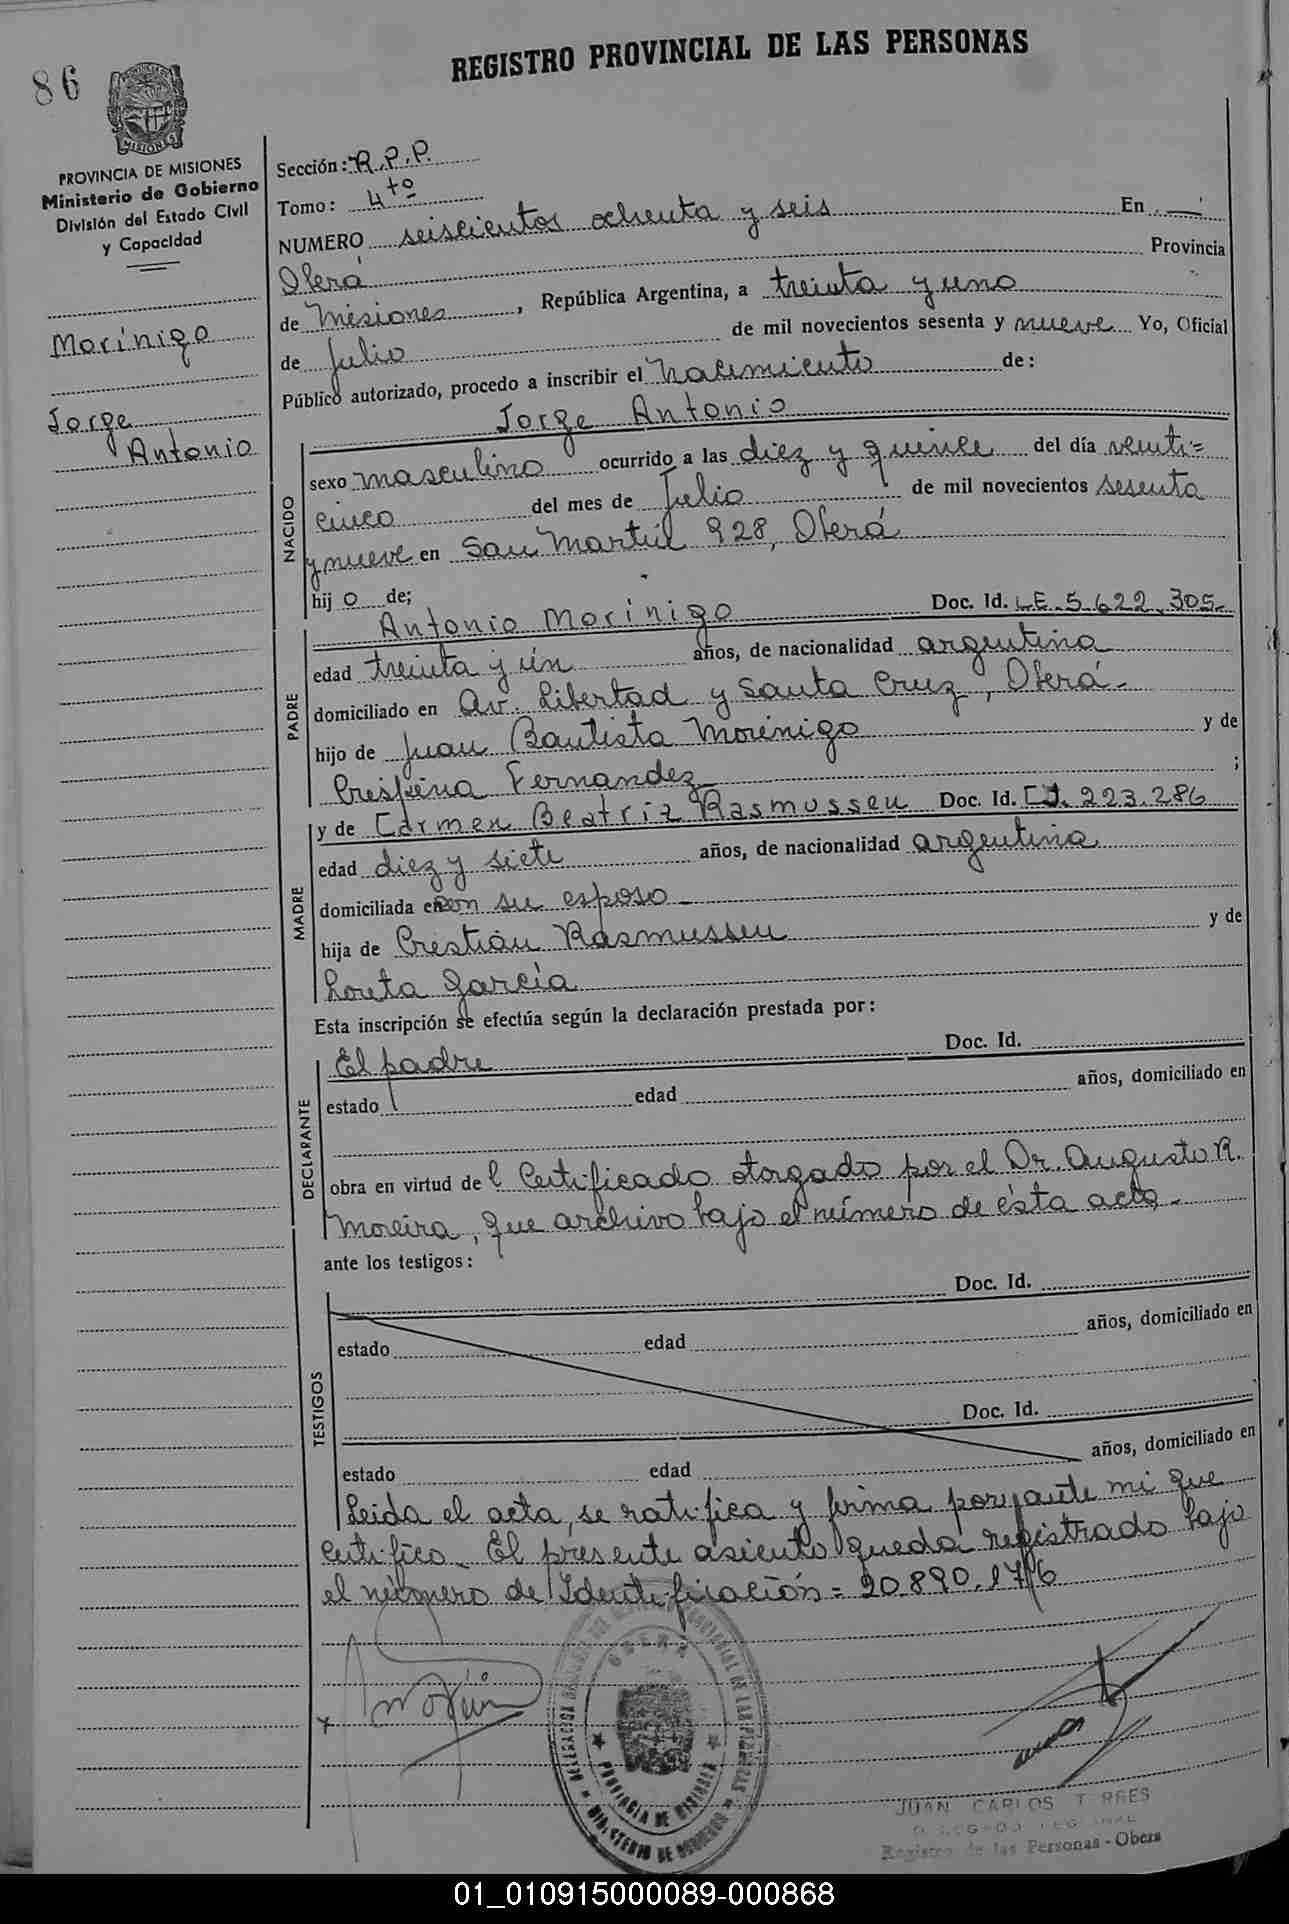 86
REGISTRO PROVINCIAL DE LAS PERSONAS
MISIONES
PROVINCIA DE MISIONES
Ministerio de Gobierno
División del Estado Civil
y Capacidad
Morínigo
Jorge
Antonio
Sección: R.P.P.
Tomo: 4to
NUMERO seiscientos ochenta y seis En
Oberá Provincia
de Misiones, República Argentina, a treinta y uno
de Julio de mil novecientos sesenta y nueve Yo, Oficial
Público autorizado, procedo a inscribir el nacimiento de:
Jorge Antonio
NACIDO
sexo masculino ocurrido a las diez y quince del día veinti=
cinco del mes de Julio de mil novecientos sesenta
y nueve en San Martín 928, Oberá
hijo de;
PADRE
Antonio Morínigo Doc. Id. L.E. 5.622.305-
edad treinta y ún años, de nacionalidad argentina
domiciliado en Av. Libertad y Santa Cruz, Oberá-
hijo de Juan Bautista Morínigo y de
Crispina Fernandez ;
MADRE
y de Carmen Beatríz Rasmussen Doc. Id. CI. 223.286
edad diez y siete años, de nacionalidad argentina
domiciliada en con su esposo-
hija de Cristián Rasmussen y de
García
Esta inscripción se efectúa según la declaración prestada por:
DECLARANTE
El padre Doc. Id.
estado edad años, domiciliado en
obra en virtud del Certificado otorgado por el Dr. Augusto R.
Moreira, que archivo bajo el número de ésta acta-
ante los testigos:
TESTIGOS
Doc. Id.
estado edad años, domiciliado en
Doc. Id.
estado edad años, domiciliado en
Leida el acta, se ratifica y firma por ante mi que
certifico. El presente asiento queda registrado bajo
el número de Identificación= 20.890.176
PROVINCIA DE MISIONES
MINISTERIO DE GOBIERNO
JUAN CARLOS TORRES
DELEGADO REGIONAL
Registro de las Personas - Oberá
01_010915000089-000868